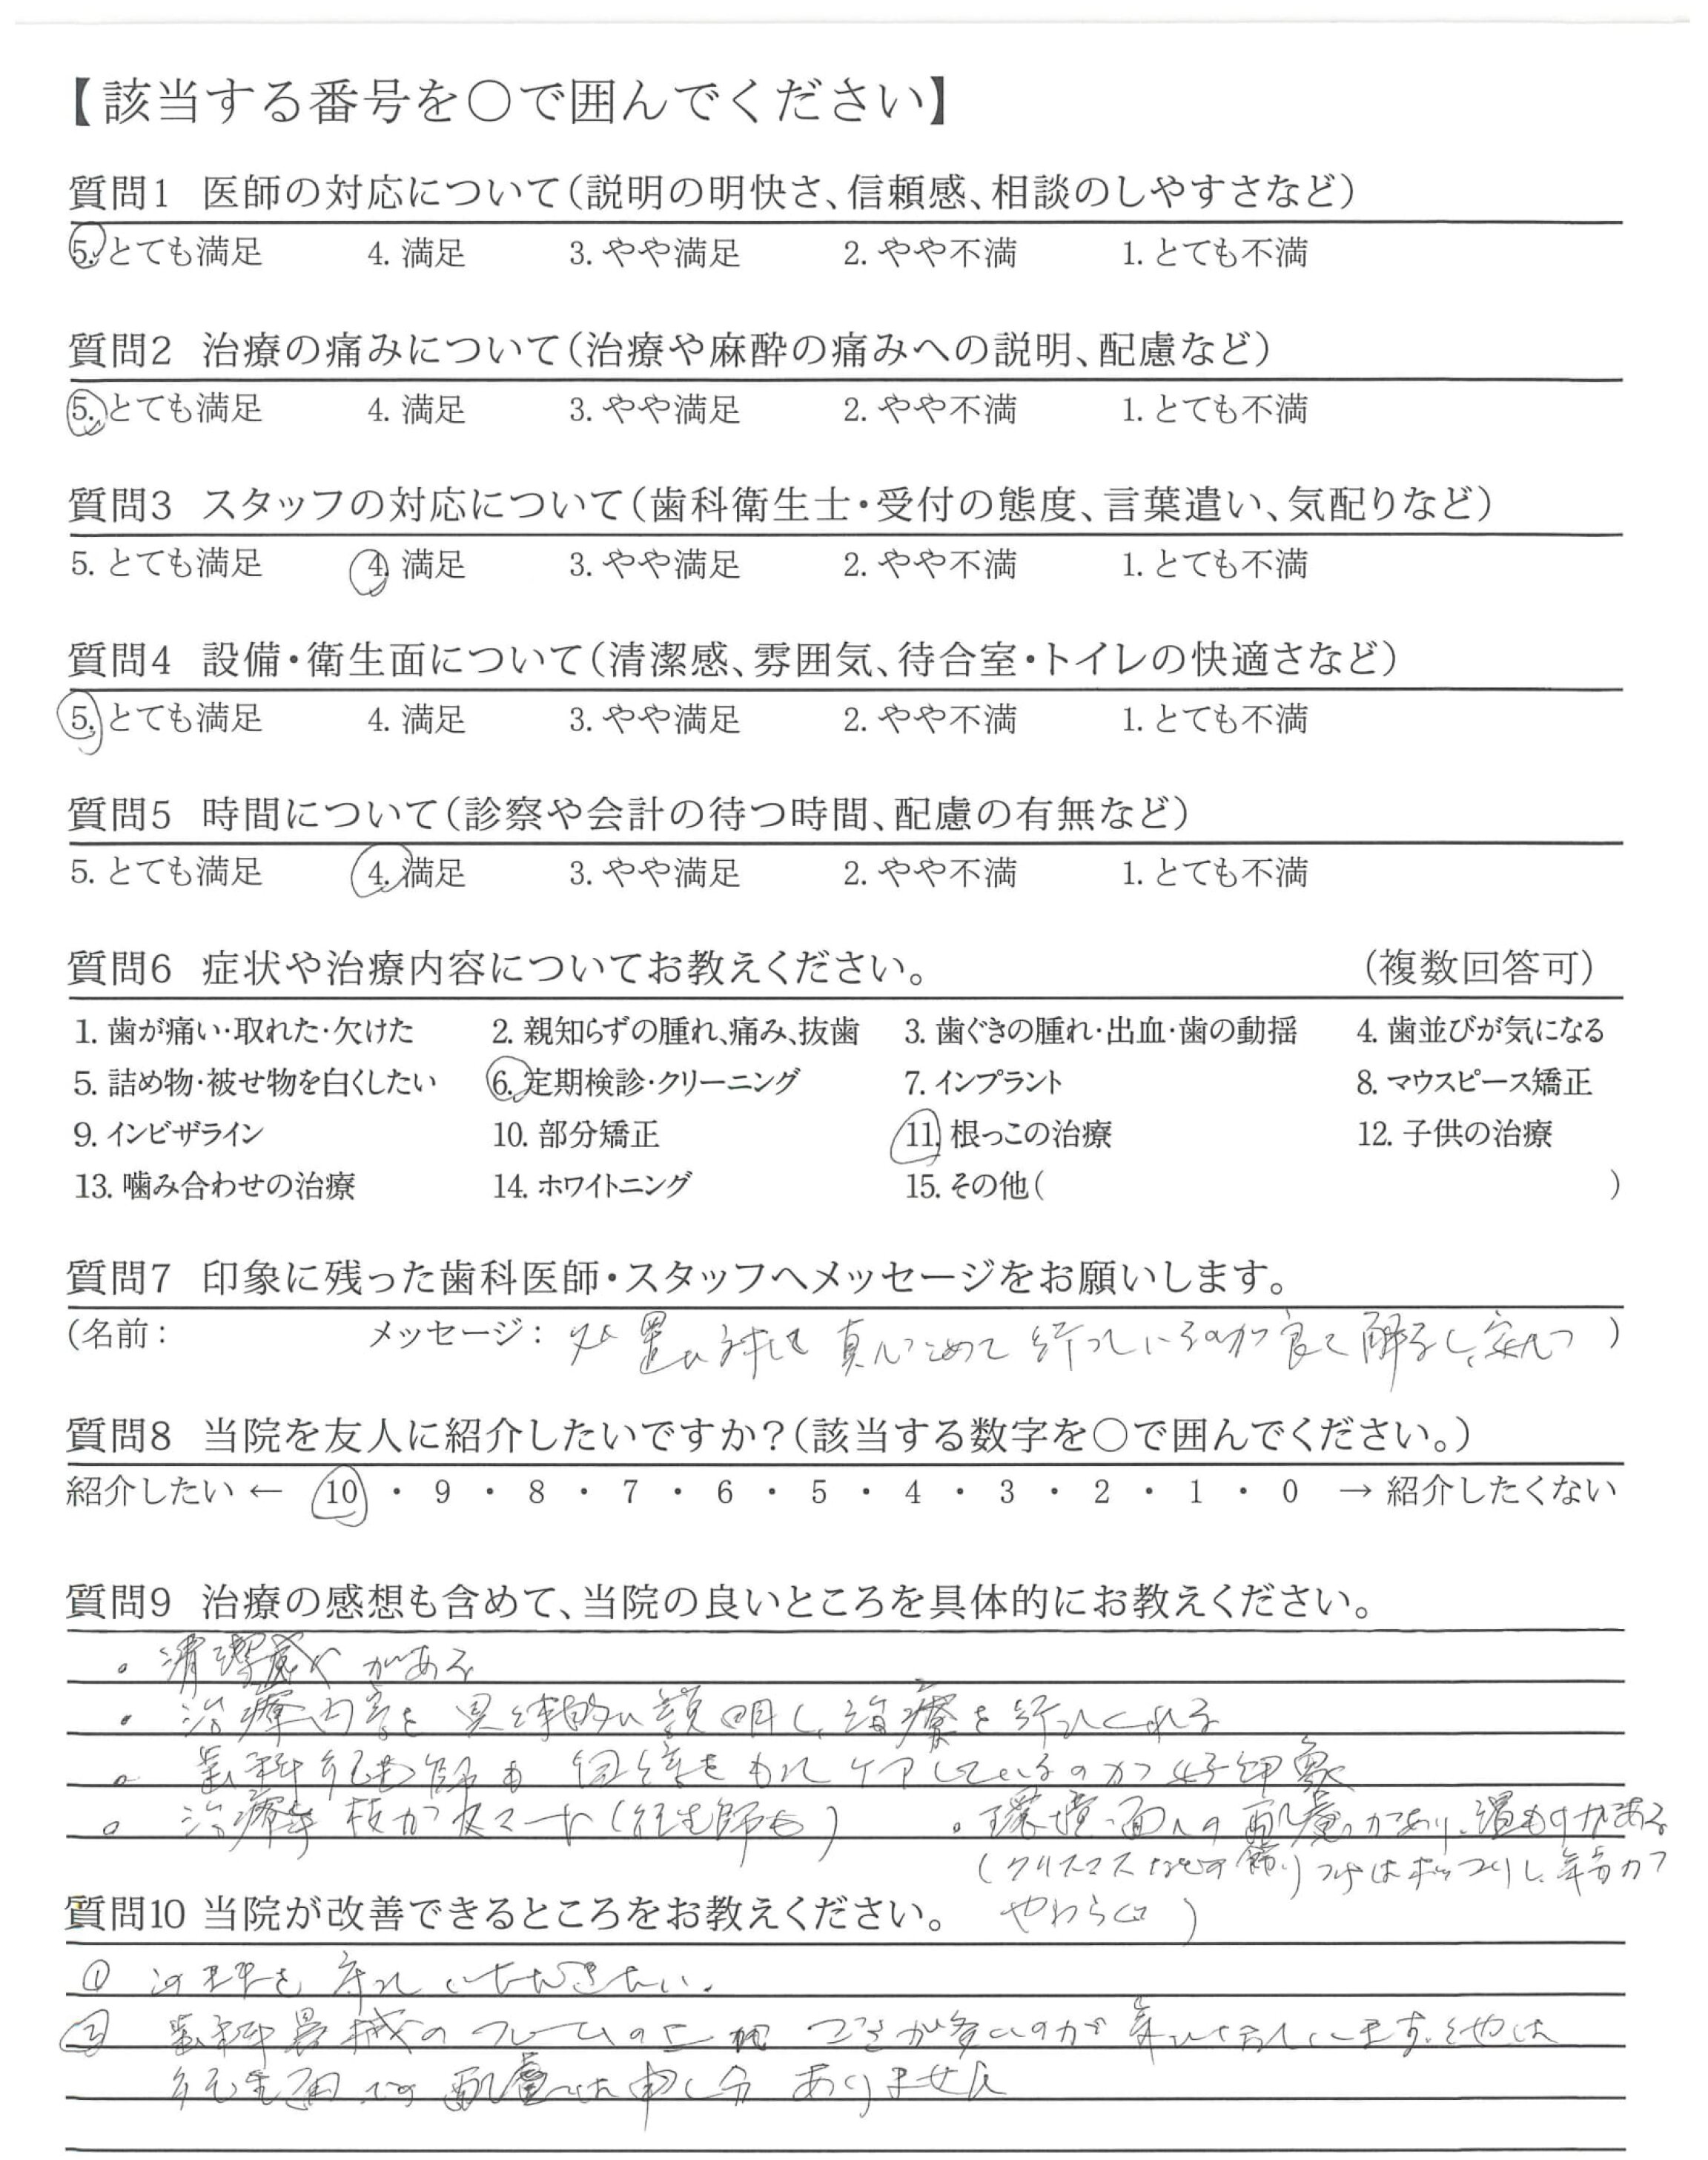 【該当する番号を〇で囲んでください】
質問1 医師の対応について（説明の明快さ、信頼感、相談のしやすさなど）
5. とても満足 4. 満足 3. やや満足 2. やや不満 1. とても不満
質問2 治療の痛みについて（治療や麻酔の痛みへの説明、配慮など）
5. とても満足 4. 満足 3. やや満足 2. やや不満 1. とても不満
質問3 スタッフの対応について（歯科衛生士・受付の態度、言葉遣い、気配りなど）
5. とても満足 4. 満足 3. やや満足 2. やや不満 1. とても不満
質問4 設備・衛生面について（清潔感、雰囲気、待合室・トイレの快適さなど）
5. とても満足 4. 満足 3. やや満足 2. やや不満 1. とても不満
質問5 時間について（診察や会計の待つ時間、配慮の有無など）
5. とても満足 4. 満足 3. やや満足 2. やや不満 1. とても不満
質問6 症状や治療内容についてお教えください。 （複数回答可）
1. 歯が痛い・取れた・欠けた 2. 親知らずの腫れ、痛み、抜歯 3. 歯ぐきの腫れ・出血・歯の動揺 4. 歯並びが気になる
5. 詰め物・被せ物を白くしたい 6. 定期検診・クリーニング 7. インプラント 8. マウスピース矯正
9. インビザライン 10. 部分矯正 11. 根っこの治療 12. 子供の治療
13. 噛み合わせの治療 14. ホワイトニング 15. その他（ ）
質問7 印象に残った歯科医師・スタッフへメッセージをお願いします。
（名前： メッセージ： 処置に対して真心こめて行っているのが良く解るし、安心 ）
質問8 当院を友人に紹介したいですか？（該当する数字を〇で囲んでください。）
紹介したい ← 10 ・ 9 ・ 8 ・ 7 ・ 6 ・ 5 ・ 4 ・ 3 ・ 2 ・ 1 ・ 0 → 紹介したくない
質問9 治療の感想も含めて、当院の良いところを具体的にお教えください。
。清潔感がある
。治療内容を具体的に説明し、治療を行ってくれる
。歯科衛生師も をもってケアしているのが好印象
。治療 技がスマート（衛生師も） 。環境面への配慮があり、温もりがある
（クリスマスなどの飾りつけはほっこりし、気分が
やわらぐ）
質問10 当院が改善できるところをお教えください。
① を いただきたい。
② 歯科器械のフレームの上 が多いのが気になっています。その他は
衛生面での配慮には申し分ありません